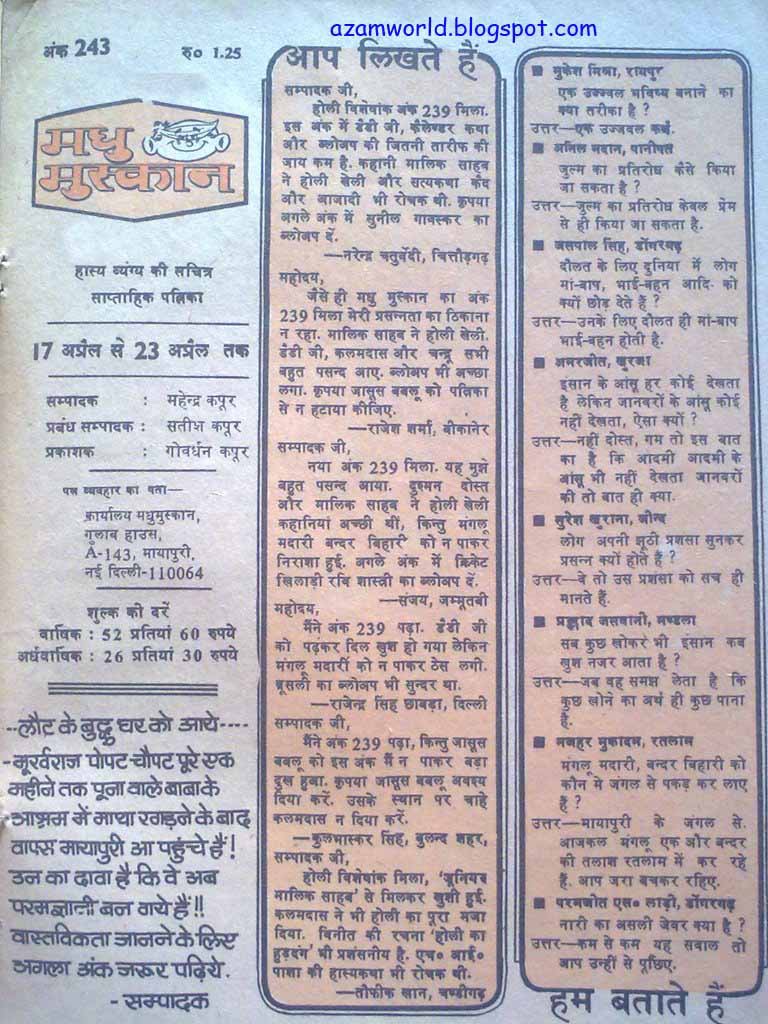 azamworld.blogspot.com
अंक 243 रु० 1.25
मधु
मुस्कान
हास्य व्यंग्य की सचित्र
साप्ताहिक पत्रिका
17 अप्रैल से 23 अप्रैल तक
सम्पादक : महेन्द्र कपूर
प्रबंध सम्पादक : सतीश कपूर
प्रकाशक : गोवर्धन कपूर
पत्र व्यवहार का पता—
कार्यालय मधुमुस्कान,
गुलाब हाउस,
A-143, मायापुरी,
नई दिल्ली-110064
शुल्क की दरें
वार्षिक : 52 प्रतियां 60 रुपये
अर्धवार्षिक : 26 प्रतियां 30 रुपये
--लौट के बुद्धु घर को आये----
-मूर्खराज पोपट चौपट पूरे एक
महीने तक पूना वाले बाबा के
आश्रम में माथा रगड़ने के बाद
वापस मायापुरी आ पहुंचे हैं!
उन का दावा है कि वे अब
परमज्ञानी बन गये हैं!!
वास्तविकता जानने के लिए
अगला अंक जरूर पढ़िये.
- सम्पादक
आप लिखते हैं
सम्पादक जी,
होली विशेषांक अंक 239 मिला.
इस अंक में डैडी जी, कैलेण्डर कथा
और ब्लोअप की जितनी तारीफ की
जाय कम है. कहानी मालिक साहब
ने होली खेली और सत्यकथा कैद
और आजादी भी रोचक थी. कृपया
अगले अंक में सुनील गावस्कर का
ब्लोअप दें.
—नरेन्द्र चतुर्वेदी, चित्तौड़गढ़
महोदय,
जैसे ही मधु मुस्कान का अंक
239 मिला मेरी प्रसन्नता का ठिकाना
न रहा. मालिक साहब ने होली खेली.
डैडी जी, कलमदास और चन्दू सभी
बहुत पसन्द आए. ब्लोअप भी अच्छा
लगा. कृपया जासूस बबलू को पत्रिका
से न हटाया कीजिए.
—राजेश शर्मा, बीकानेर
सम्पादक जी,
नया अंक 239 मिला. यह मुझे
बहुत पसन्द आया. दुश्मन दोस्त
और मालिक साहब ने होली खेली
कहानियां अच्छी थीं, किन्तु मंगलू
मदारी बन्दर बिहारी को न पाकर
निराशा हुई. अगले अंक में क्रिकेट
खिलाड़ी रवि शास्त्री का ब्लोअप दें.
—संजय, जम्मूतवी
महोदय,
मैंने अंक 239 पढ़ा. डैडी जी
को पढ़कर दिल खुश हो गया लेकिन
मंगलू मदारी को न पाकर ठेस लगी.
ब्रूसली का ब्लोअप भी सुन्दर था.
—राजेन्द्र सिंह छाबड़ा, दिल्ली
सम्पादक जी,
मैंने अंक 239 पढ़ा, किन्तु जासूस
बबलू को इस अंक मैं न पाकर बड़ा
दुख हुआ. कृपया जासूस बबलू अवश्य
दिया करें. उसके स्थान पर चाहे
कलमदास न दिया करें.
—कुलभास्कर सिंह, बुलन्द शहर,
सम्पादक जी,
होली विशेषांक मिला, 'जूनियर
मालिक साहब' से मिलकर खुशी हुई.
कलमदास ने भी होली का पूरा मजा
दिया. विनीत की रचना 'होली का
हुड़दंग' भी प्रशंसनीय है. एच० आई०
पाशा की हास्यकथा भी रोचक थी.
—तौफीक खान, चण्डीगढ़
■ मुकेश मिश्रा, रायपुर
एक उज्ज्वल भविष्य बनाने का
क्या तरीका है ?
उत्तर—एक उज्जवल कर्म.
■ अनिल मदान, पानीपत
जुल्म का प्रतिरोध कैसे किया
जा सकता है ?
उत्तर—जुल्म का प्रतिरोध केवल प्रेम
से ही किया जा सकता है.
■ जसपाल सिंह, डोंगरगढ़
दौलत के लिए दुनिया में लोग
मां-बाप, भाई-बहन आदि को
क्यों छोड़ देते हैं ?
उत्तर—उनके लिए दौलत ही मां-बाप
भाई-बहन होती है.
■ अमरजीत, खुरजा
इंसान के आंसू हर कोई देखता
है लेकिन जानवरों के आंसू कोई
नहीं देखता, ऐसा क्यों ?
उत्तर—नहीं दोस्त, गम तो इस बात
का है कि आदमी आदमी के
आंसू भी नहीं देखता जानवरों
की तो बात ही क्या.
■ सुरेश खुराना, जीन्द
लोग अपनी झूठी प्रशंसा सुनकर
प्रसन्न क्यों होते हैं ?
उत्तर—वे तो उस प्रशंसा को सच ही
मानते हैं.
■ प्रह्लाद जसवानी, मण्डला
सब कुछ खोकर भी इंसान कब
खुश नजर आता है ?
उत्तर—जब वह समझ लेता है कि
कुछ खोने का अर्थ ही कुछ पाना
है.
■ मजहर मुकादम, रतलाम
मंगलू मदारी, बन्दर बिहारी को
कौन से जंगल से पकड़ कर लाए
हैं ?
उत्तर—मायापुरी के जंगल से.
आजकल मंगलू एक और बन्दर
की तलाश रतलाम में कर रहे
हैं. आप जरा बचकर रहिए.
■ परमजीत एस० लाड़ी, डोंगरगढ़
नारी का असली जेवर क्या है ?
उत्तर—कम से कम यह सवाल तो
आप उन्हीं से पूछिए.
हम बताते हैं